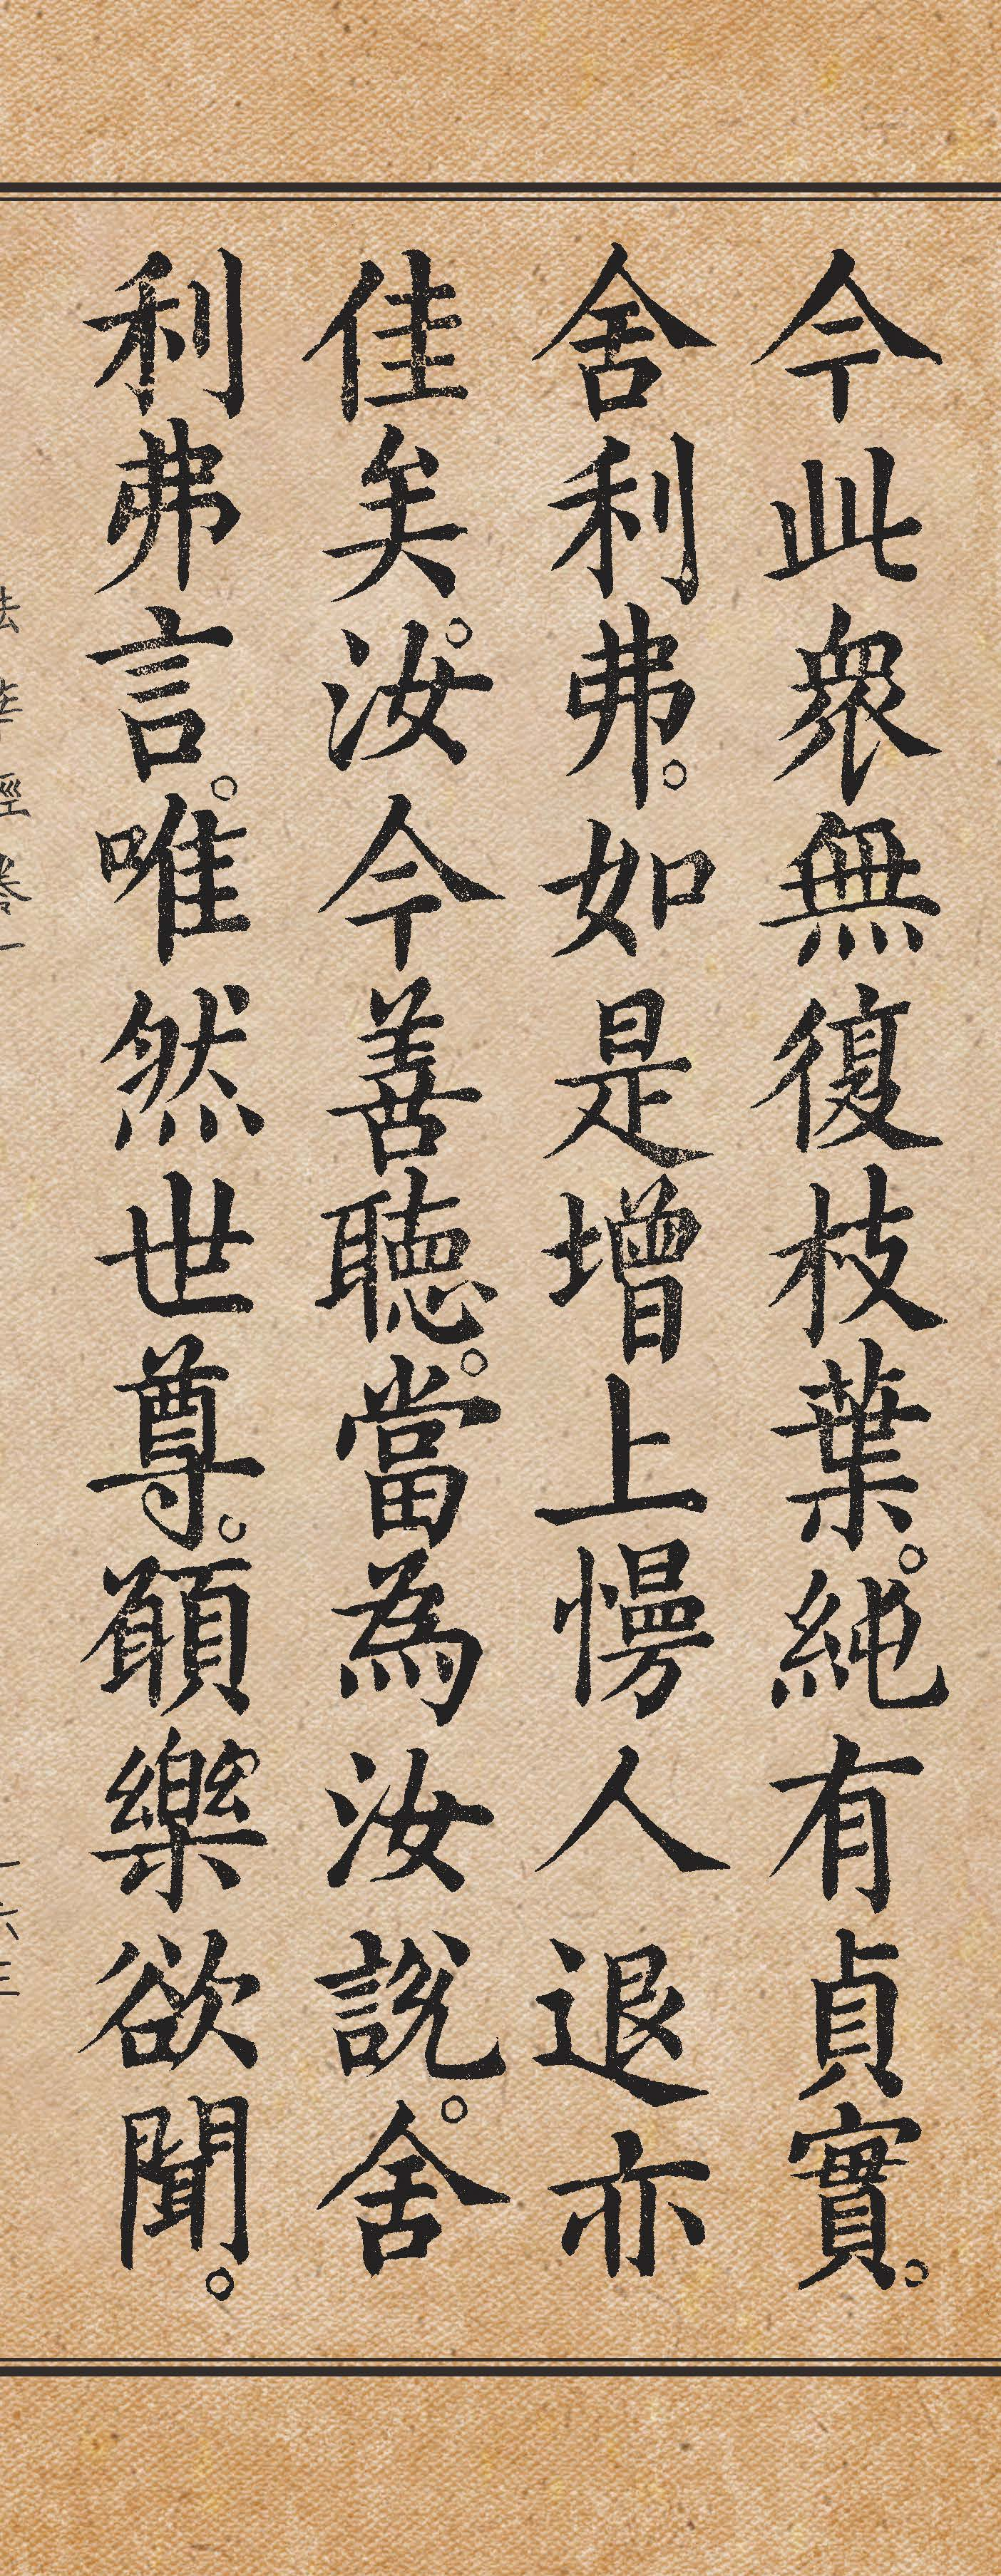 今此眾無復枝葉。純有貞實。
舍利弗。如是增上慢人退亦
佳矣。汝今善聽。當為汝說。舍
利弗言。唯然世尊。願樂欲聞。
法華經卷一
一六三